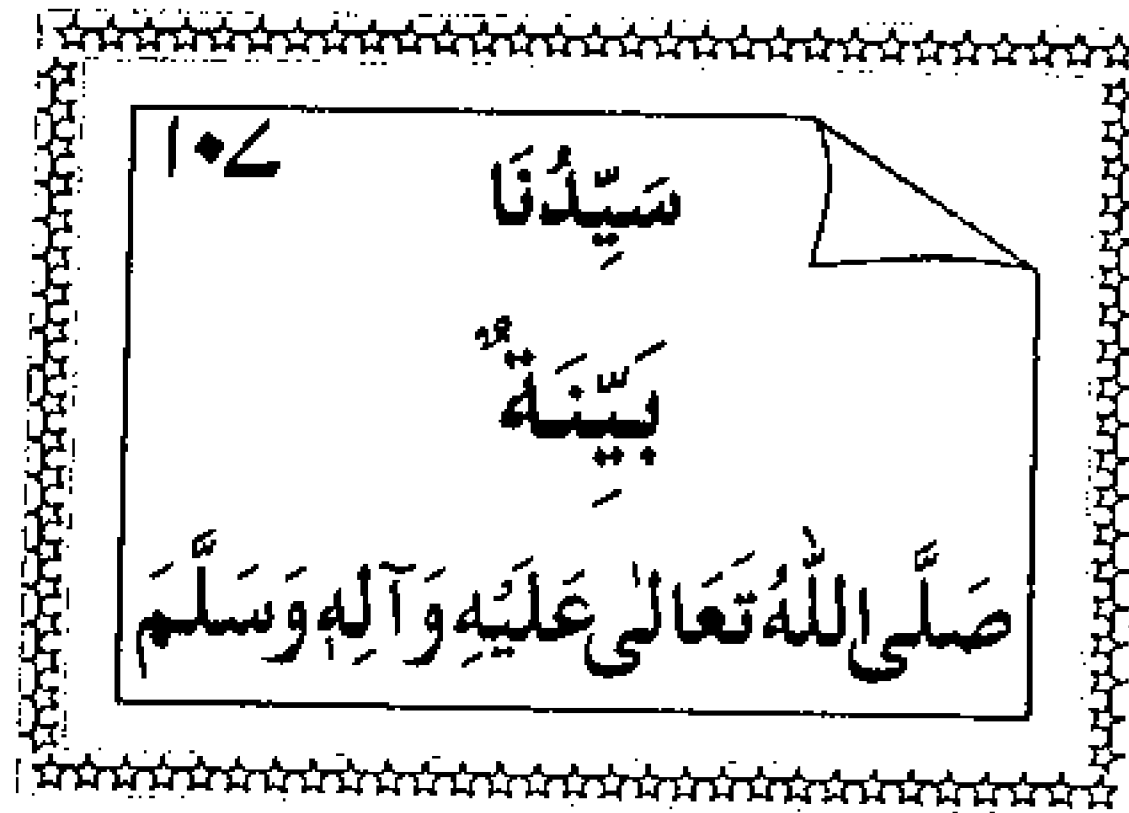 ۱۰۷
سَيِّدُنَا
بَيِّنَةٌ
صَلَّى اللّٰهُ تَعَالٰى عَلَيْهِ وَآلِهٖ وَسَلَّمَ